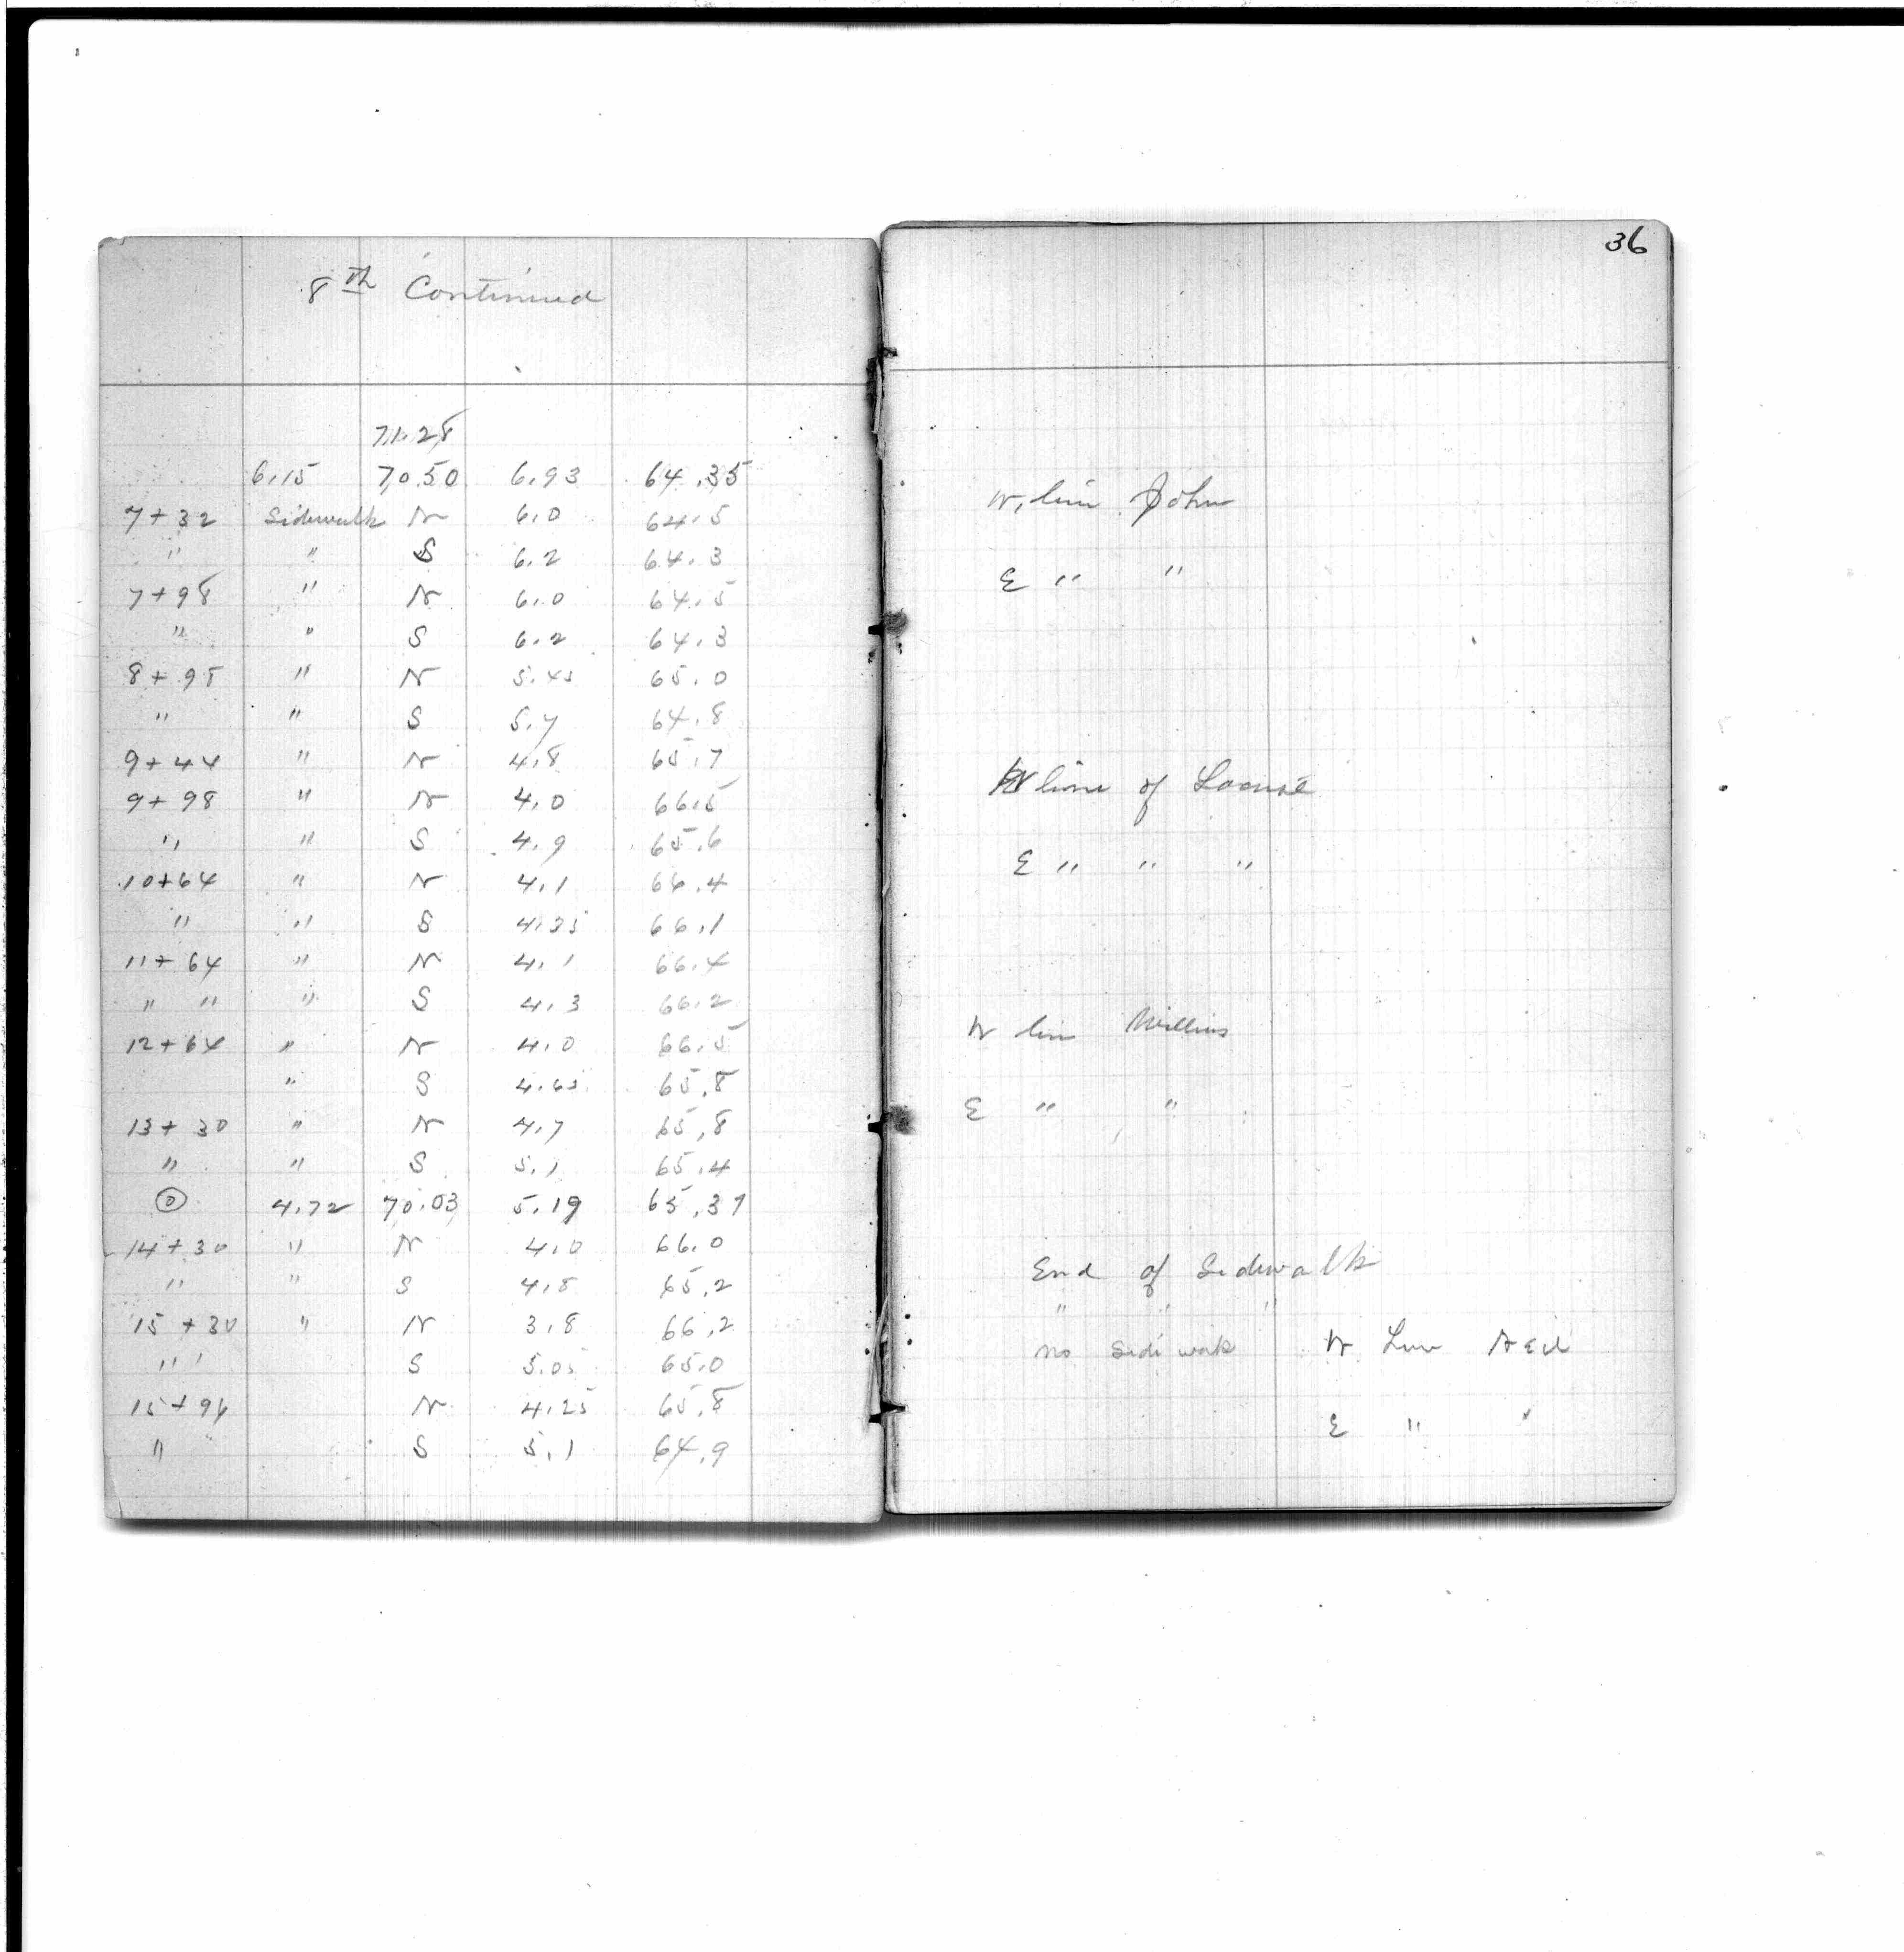 8th Continued
71.28
6.15 70.50 6.93 64.35
7+32 Sidewalk N 6.0 64.5
" " S 6.2 64.3
7+98 " N 6.0 64.5
" " S 6.2 64.3
8+98 " N 5.45 65.0
" " S 5.7 64.8
9+44 " N 4.8 65.7
9+98 " N 4.0 66.5
" " S 4.9 65.6
10+64 " N 4.1 66.4
" " S 4.35 66.1
11+64 " N 4.1 66.4
" " " S 4.3 66.2
12+64 " N 4.0 66.5
" S 4.65 65.8
13+30 " N 4.7 65.8
" " S 5.1 65.4
4.72 70.03 5.19 65.31
14+30 " N 4.0 66.0
" " S 4.8 65.2
15+30 " N 3.8 66.2
" S 5.05 65.0
15+96 N 4.25 65.8
" S 5.1 64.9
36
W. line John
E " "
W line of Locust
E " " "
W line Willius
E " "
End of Sidewalk
" " "
No Sidewalk W Line
E " "